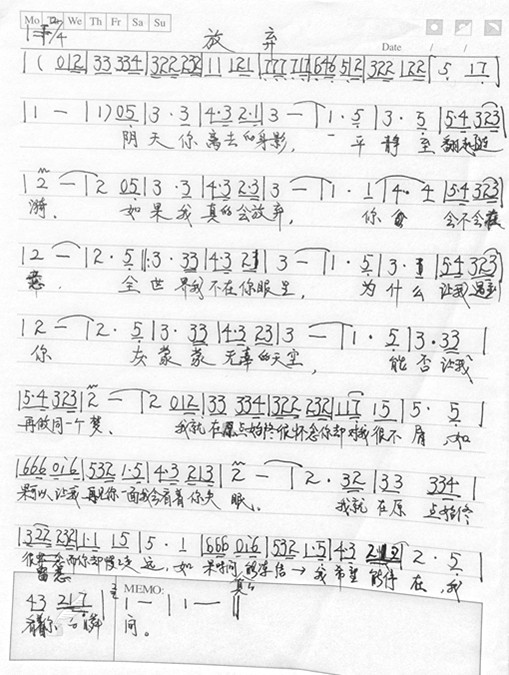 Mo Tu We Th Fr Sa Su
放弃
Date / /
1= /4
|( 012 | 33 334 | 322 232 | 11 121 | 777 717 | 646 512 | 322 122 | 5 17 |
| 1 - | 1) 05 | 3·3 | 4·3 2·1 | 3 - | 1·5 | 3·5 | 5·4 323 |
阴天你离去的身影, 平静至翻起涟
| 2 - | 2 05 | 3·3 | 4·3 2·3 | 3 - | 1·1 | 4·4 | 5·4 323 |
漪. 如果我真的会放弃, 你 会不会在
| 2 - | 2·5 |: 3·33 | 4·3 2 | 3 - | 1·5 | 3· | 5·4 323 |
意. 全世界我不在你眼里, 为什么让我遇到
| 2 - | 2·5 | 3·33 | 4·3 23 | 3 - | 1·5 | 3·33 |
你 灰蒙蒙无辜的天空, 能否让我
| 5·4 323 | 2 - | 2 012 | 33 334 | 322 232 | 117 15 | 5·5 |
再做同一个梦. 我就在原点始终很怀念你却对我很不屑,如
| 666 016 | 532 1·5 | 43 213 | 2 - | 2·32 | 33 334 |
果可以让我再见你一面我会看着你失眠. 我就在原点始终
| 322 232 | 1·1 15 | 5·1 | 666 016 | 532 1·5 | 43 | 2·5 |
很 你却 远,如果时间 结→我希望能停在,我
留恋 真的
43 217 | 1 - | 1 - ‖
看着你 瞬 间。
MEMO: